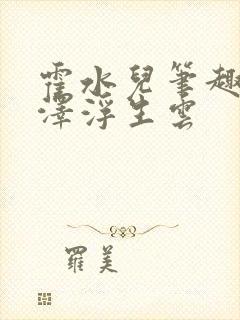 霍水兒筆趣
澤浮生雲
羅美